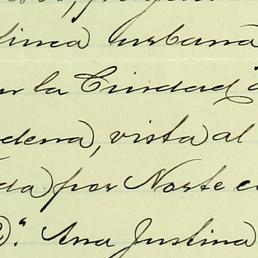 linea urbana
por la Ciudad d
dena, vista al
da por Norte c
Ana Justina